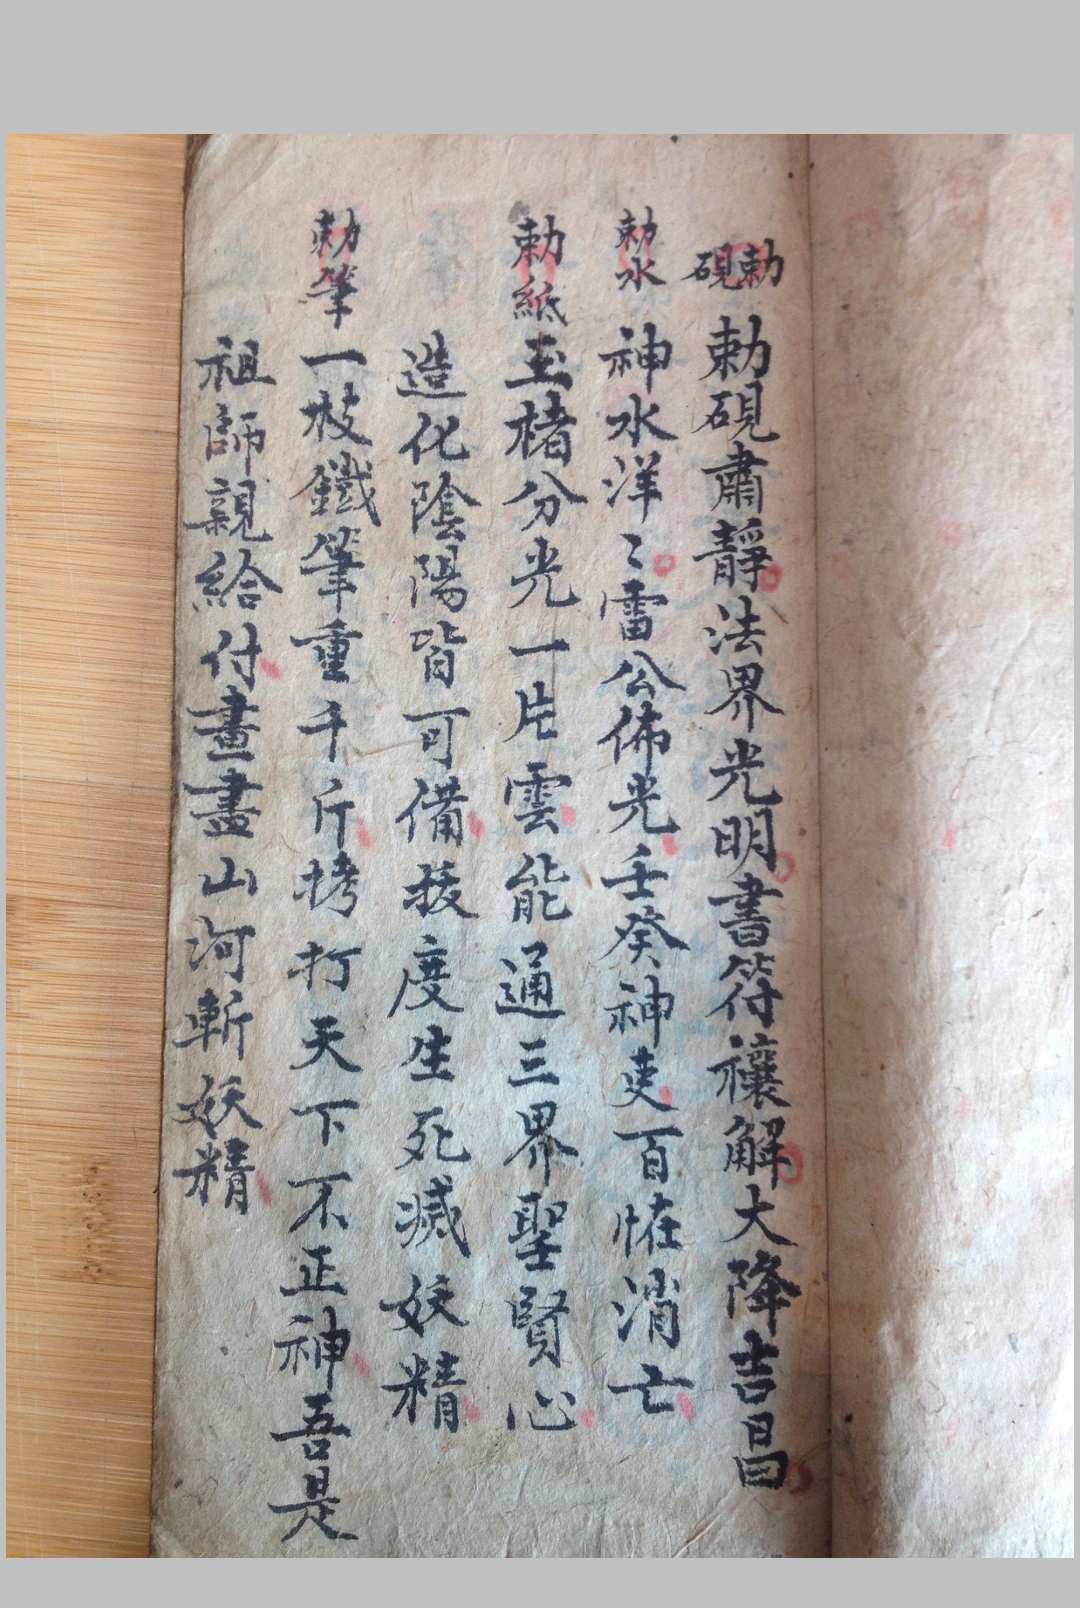 勅硯 勅硯肅靜法界光明書符禳解大降吉昌
勅水 神水洋〻雷公佈光壬癸神吏百恠消亡
勅紙 玉楮分光一片雲能通三界聖賢心
造化陰陽皆可備拔度生死滅妖精
勅筆 一枝鐵筆重千斤拷打天下不正神吾是
祖師親給付畫畫山河斬妖精